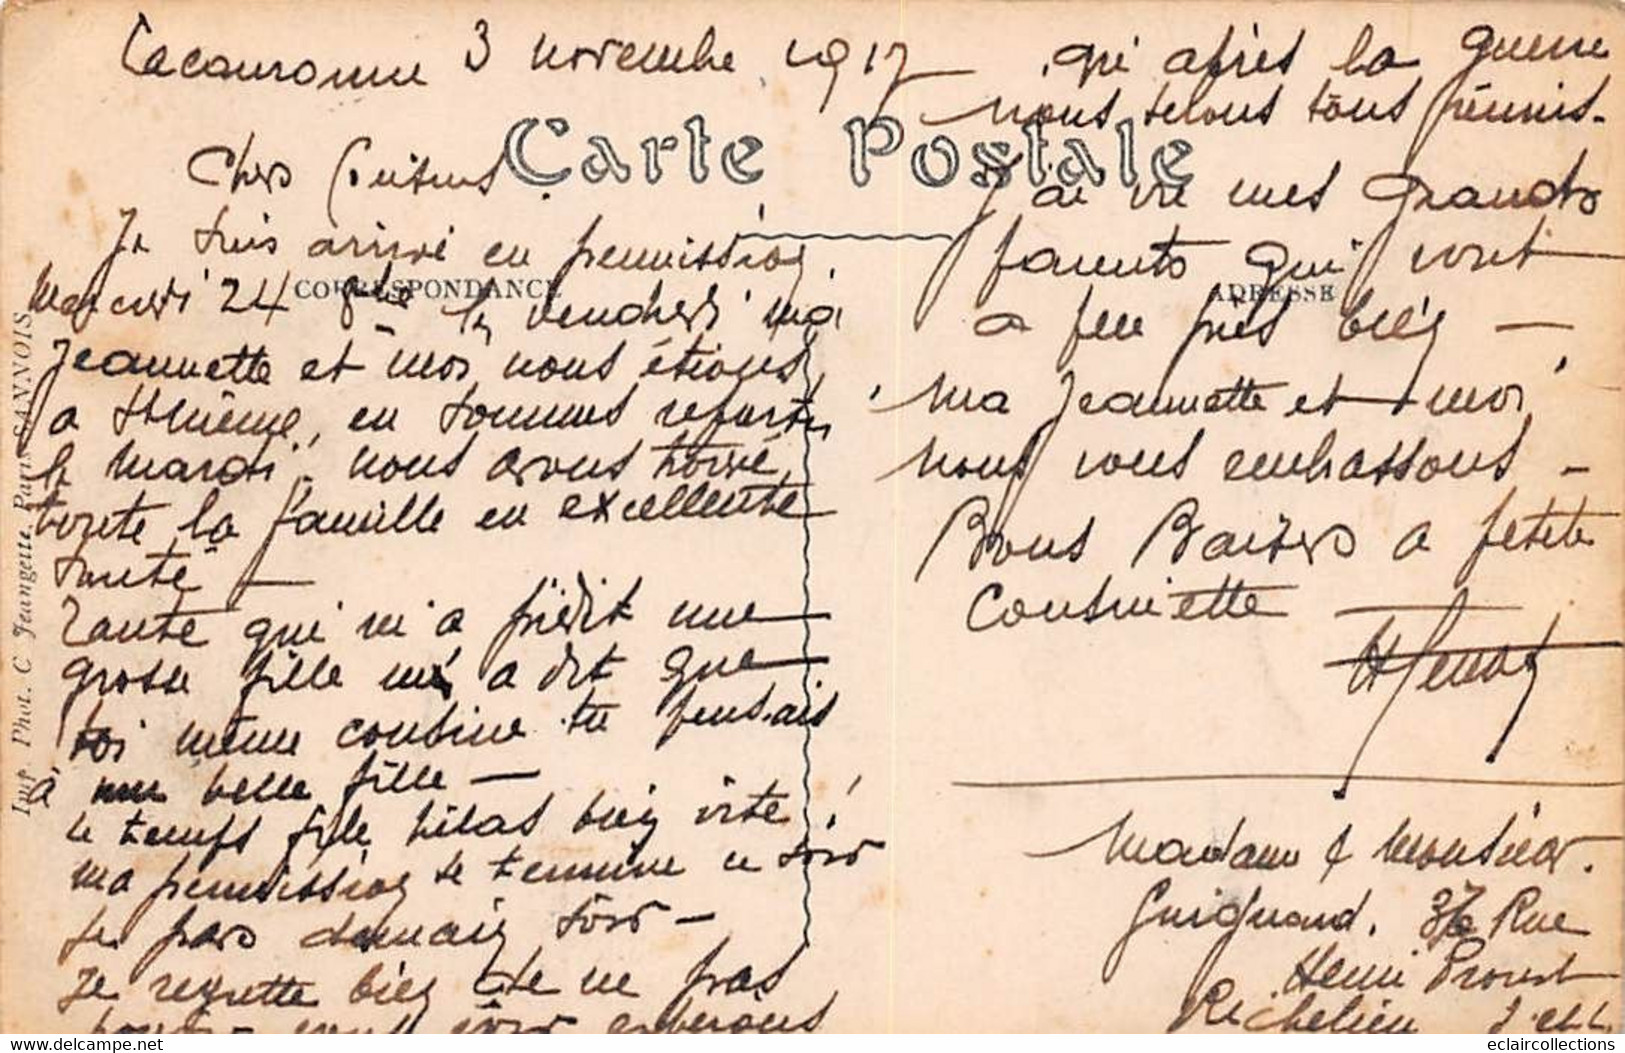 Lacauronne 3 novembre 1917
Carte Postale
Chers Cousins
Je suis arrivé en permission
CORRESPONDANCE
mercredi 24 le vendredi ma
Jeannette et moi nous étions
a en sommes repartis
le mardi, nous avons trouvé
toute la famille en excellente
santé —
Tante qui m'a prédit une
grosse fille m'a dit que
toi même cousine tu pensais
à une belle fille —
le temps file hélas bien vite !
ma permission se termine ce soir
je pars demain soir —
Je regrette bien de ne pas
vous voir espérons
qui après la guerre
nous serons tous réunis.
J'ai vu mes Grands
parents qui vont
ADRESSE
a peu près bien —
Ma Jeannette et moi
nous vous embrassons —
Bons Baisers a petite
Cousinette
Madame & Monsieur
Guignard. Rue
Henri Proust
Richelieu I. et L.
Imp. Phot. C Jeangette, Paris-SANNOIS
eclaircollections